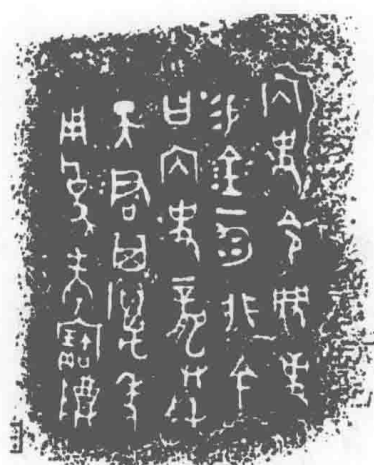 内史令事
易金一匀非余
曰内史龏朕
天君其萬年
用為考寶尊